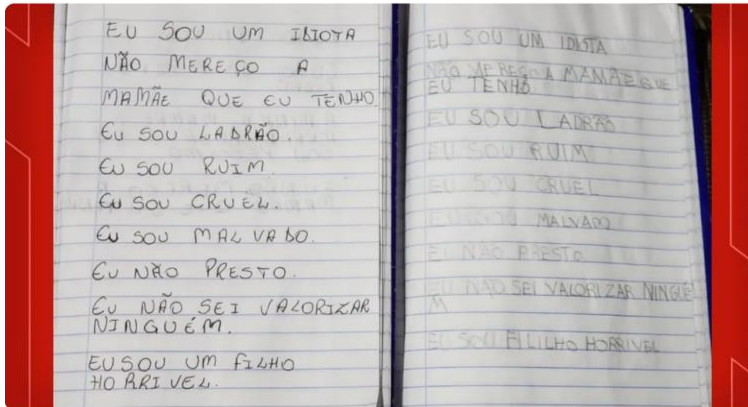 EU SOU UM IDIOTA
NÃO MEREÇO A
MAMÃE QUE EU TENHO
EU SOU LADRÃO.
EU SOU RUIM
EU SOU CRUEL.
EU SOU MALVADO.
EU NÃO PRESTO.
EU NÃO SEI VALORIZAR
NINGUÉM.
EU SOU UM FILHO
HORRIVEL.
EU SOU UM IDISTA
NÃO MEREÇO A MAMÃE QUE
EU TENHO
EU SOU LADRÃO
EU SOU RUIM
EU SOU CRUEL
EU SOU MALVADO
E NÃO PRESTO
EU NÃO SEI VALORIZAR NINGUÉ
M
EU SOU FILILHO HORRIVEL